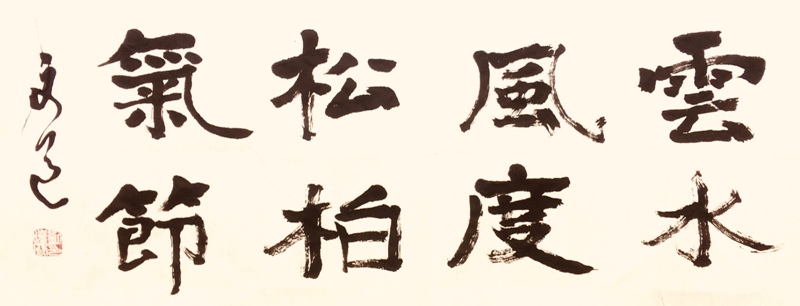 雲水
風度
松柏
氣節